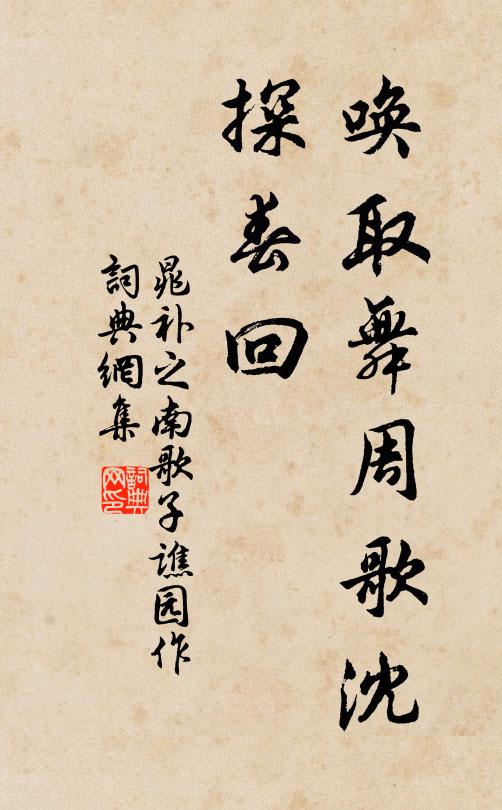 唤取舞周歌沈
探春回
晁补之南歌子谯园作
詞典網集
詞典网印